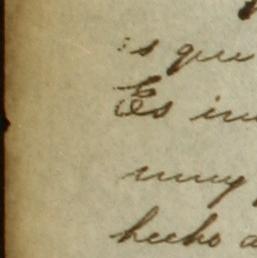 es que
Es in
muy
hecho a